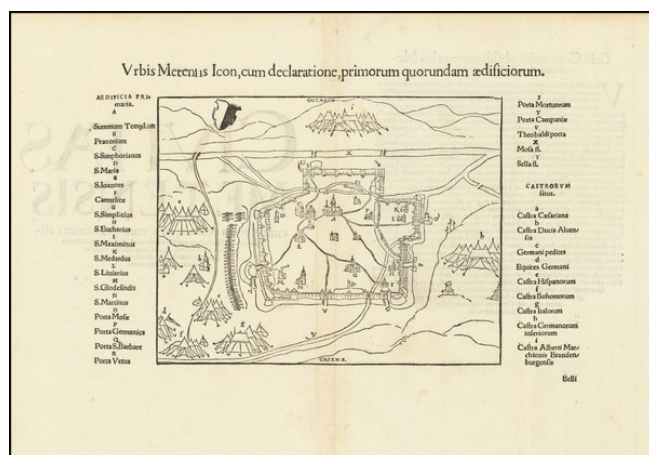 Vrbis Metensis Icon, cum declaratione, primorum quorundam ædificiorum.
ÆDIFICIA PRI-
maria.
A
Summum Templum
B
Prætorium
C
S. Simphorianus
D
S. Maria
E
S. Ioannes
F
Carmelitæ
G
S. Simplicius
H
S. Eucharius
I
S. Maximinus
K
S. Medardus
L
S. Liniarius
M
S. Glodesindis
N
S. Martinus
O
Porta Mosæ
P
Porta Germanica
Q
Porta S. Barbaræ
R
Porta Vetus
OCCASVS
ORIENS.
Porta Mortuorum
T
Porta Campaniæ
V
Theobaldi porta
X
Mosa fl.
Y
Sella fl.
CASTRORVM
situs.
a
Castra Cæsariana
b
Castra Ducis Aluen-
sis
c
Germani pedites
d
Equites Germani
e
Castra Hispanorum
f
Castra Bohemorum
g
Castra Italorum
h
Castra Germanorum
inferiorum
i
Castra Alberti Mar-
chionis Branden-
burgensis
Belli